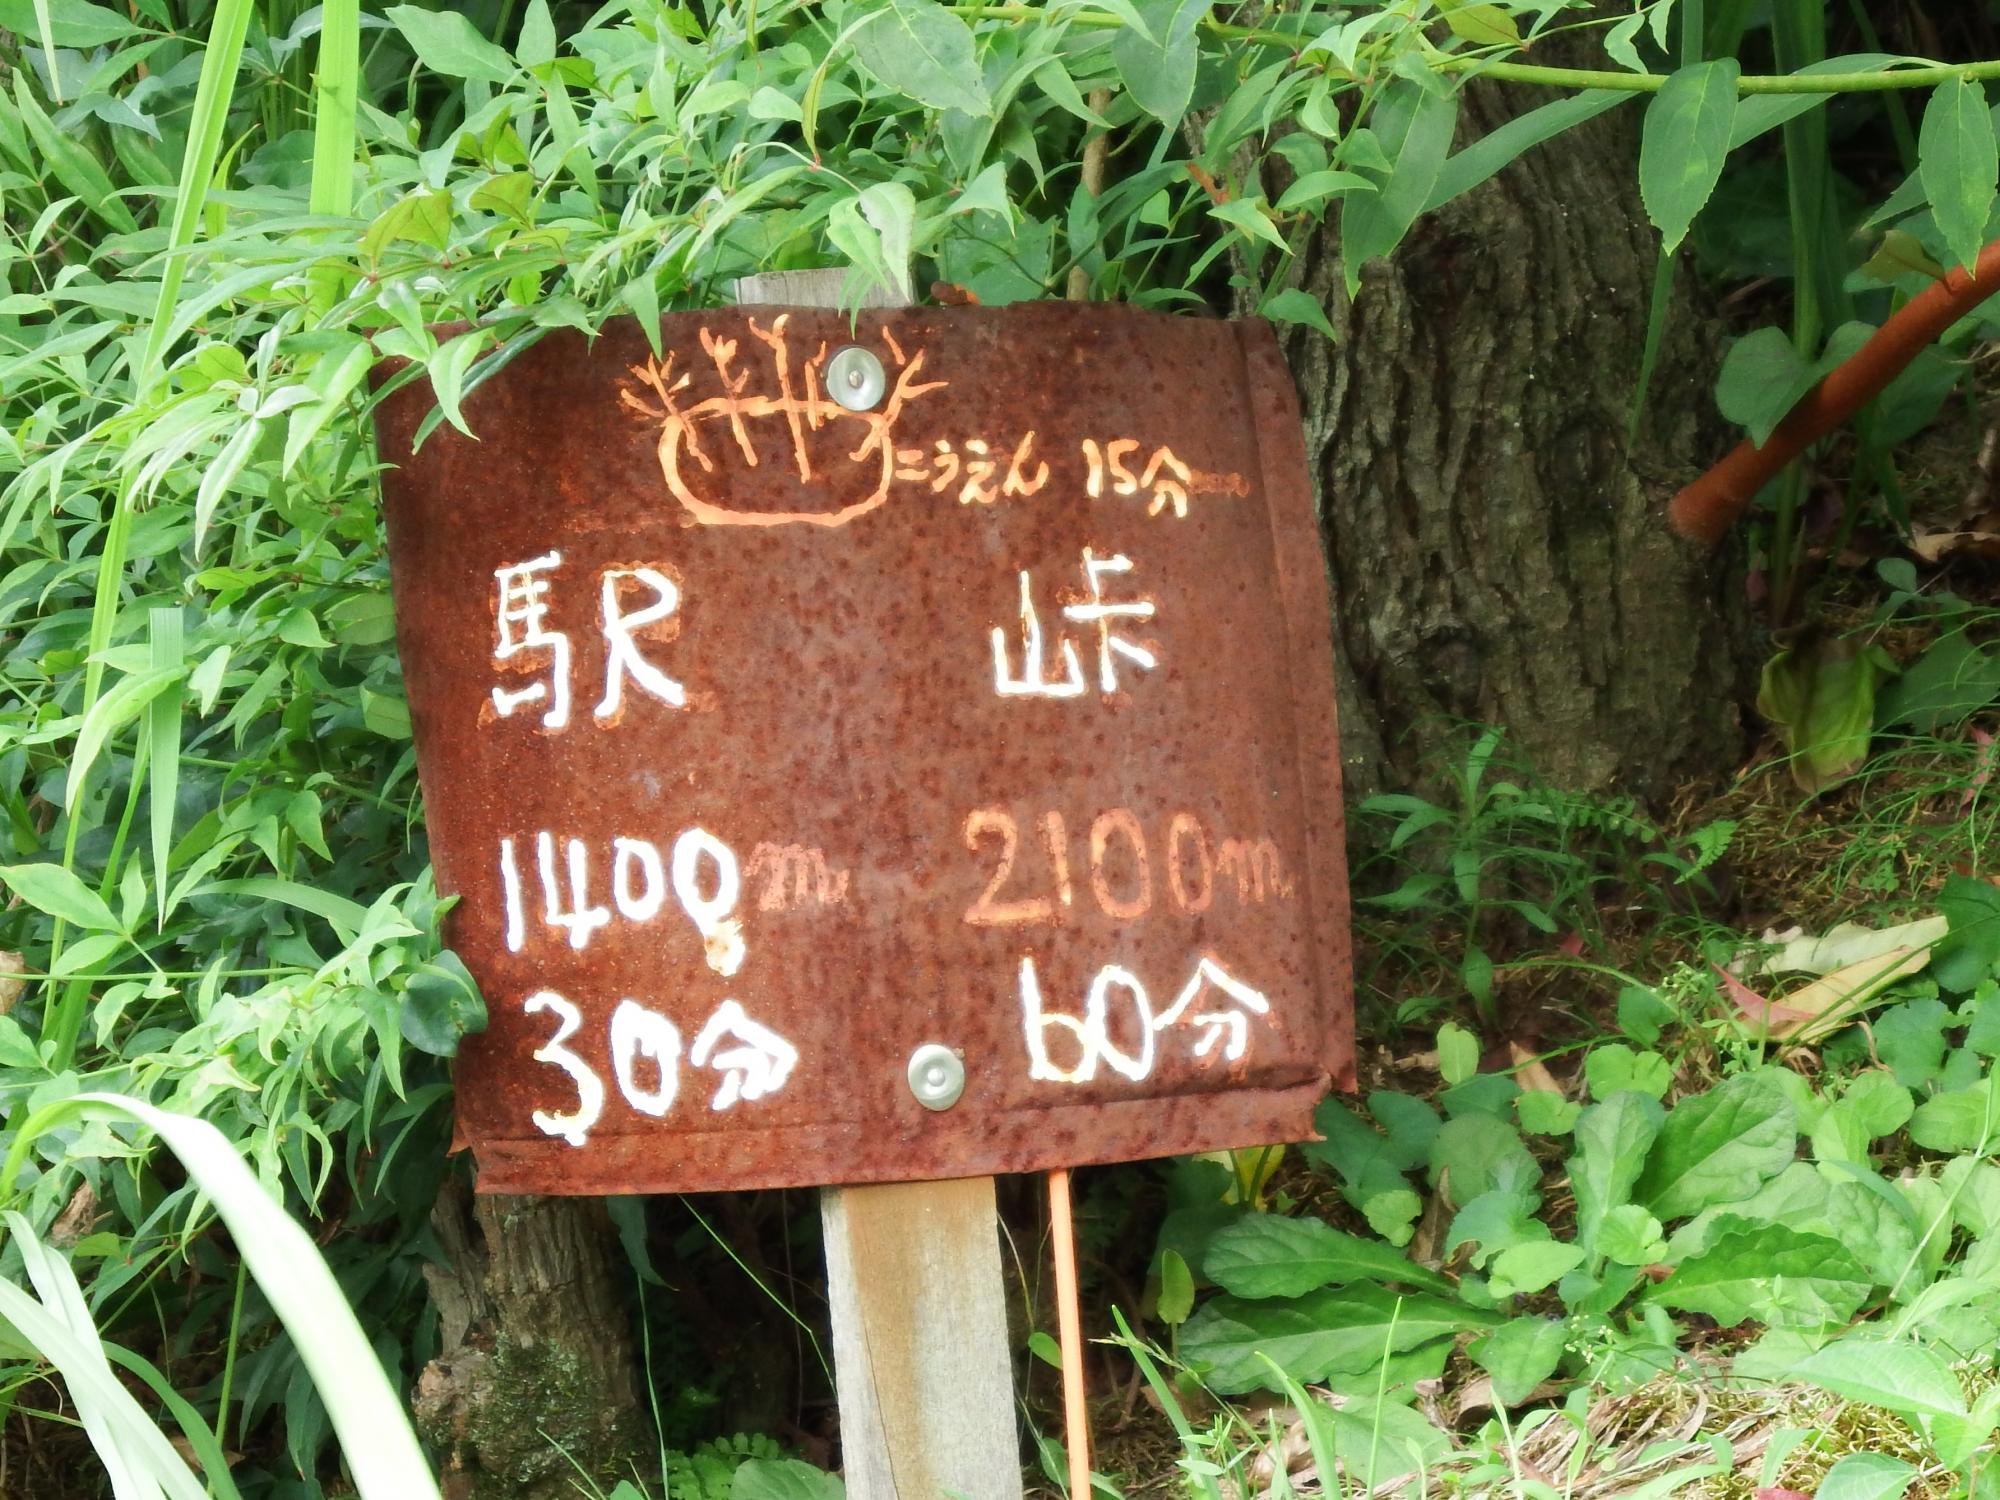 こうえん 15分
駅 峠
1400m 2100m
30分 60分